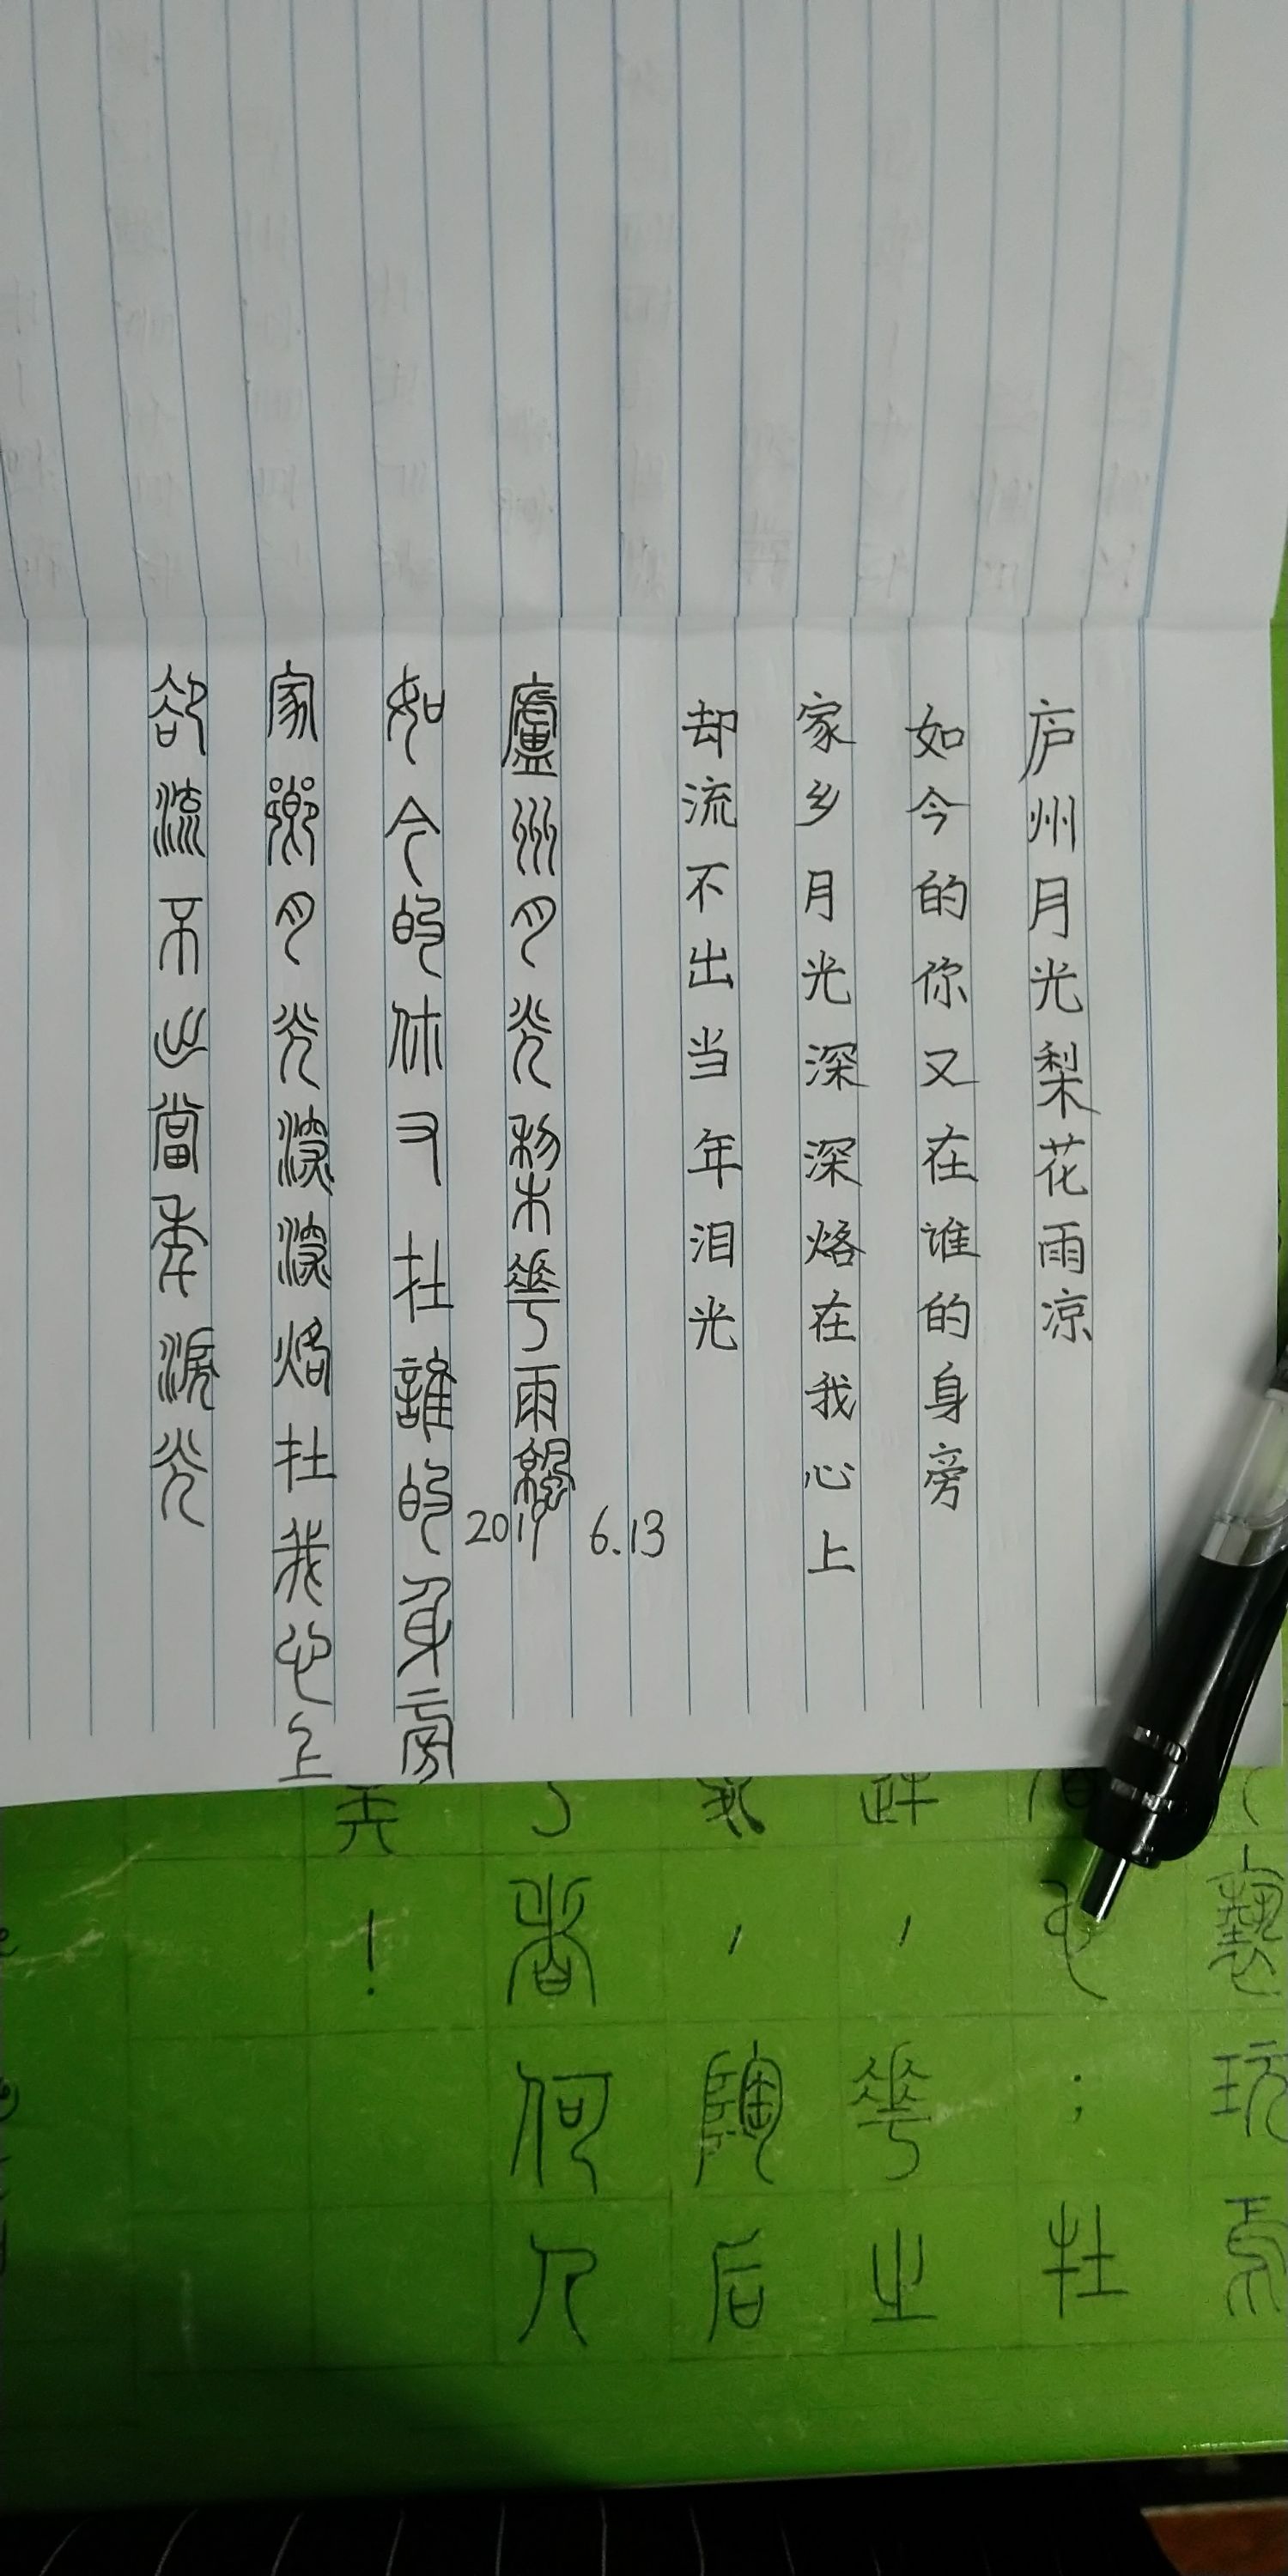 庐州月光梨花雨凉
如今的你又在谁的身旁
家乡月光深深烙在我心上
却流不出当年泪光
廬州月光梨華雨
如今的你又在誰的身旁
家鄉月光深深烙在我心上
卻流不出當年淚光
2019 6.13
玩
在
華之
陶后
者何人
！